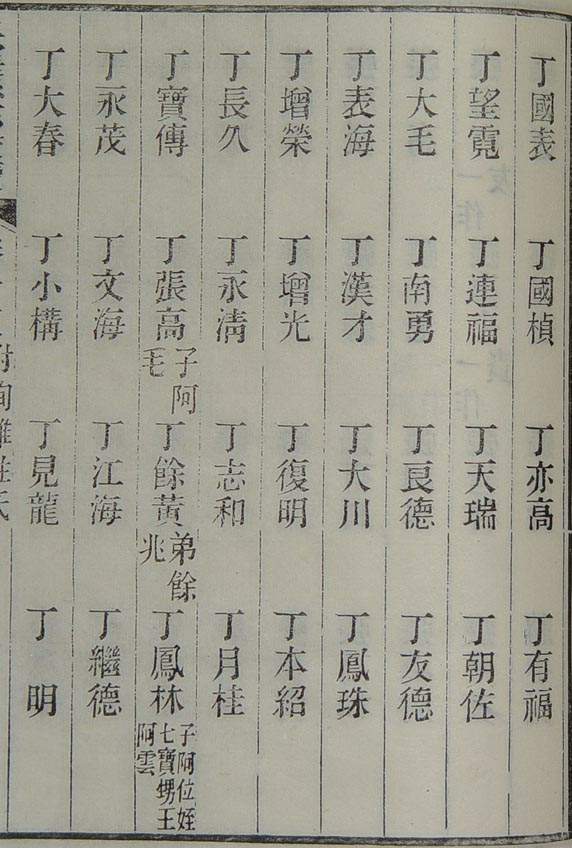 丁國表 丁國楨 丁亦高 丁有福
丁望霓 丁連福 丁天瑞 丁朝佐
丁大毛 丁南勇 丁良德 丁友德
丁表海 丁漢才 丁大川 丁鳳珠
丁增榮 丁增光 丁復明 丁本紹
丁長久 丁永清 丁志和 丁月桂
丁寶傳 丁張高子阿毛 丁餘黃弟餘兆 丁鳳林子阿位姪七寶甥王阿雲
丁永茂 丁文海 丁江海 丁繼德
丁大春 丁小構 丁見龍 丁明